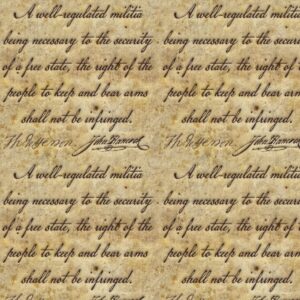 A well-regulated militia A well-regulated militia
being necessary to the security being necessary to the security
of a free state, the right of the of a free state, the right of the
people to keep and bear arms people to keep and bear arms
shall not be infringed. shall not be infringed.
John Hancock John Hancock
A well-regulated militia A well-regulated militia
being necessary to the security being necessary to the security
of a free state, the right of the of a free state, the right of the
people to keep and bear arms people to keep and bear arms
shall not be infringed. shall not be infringed.